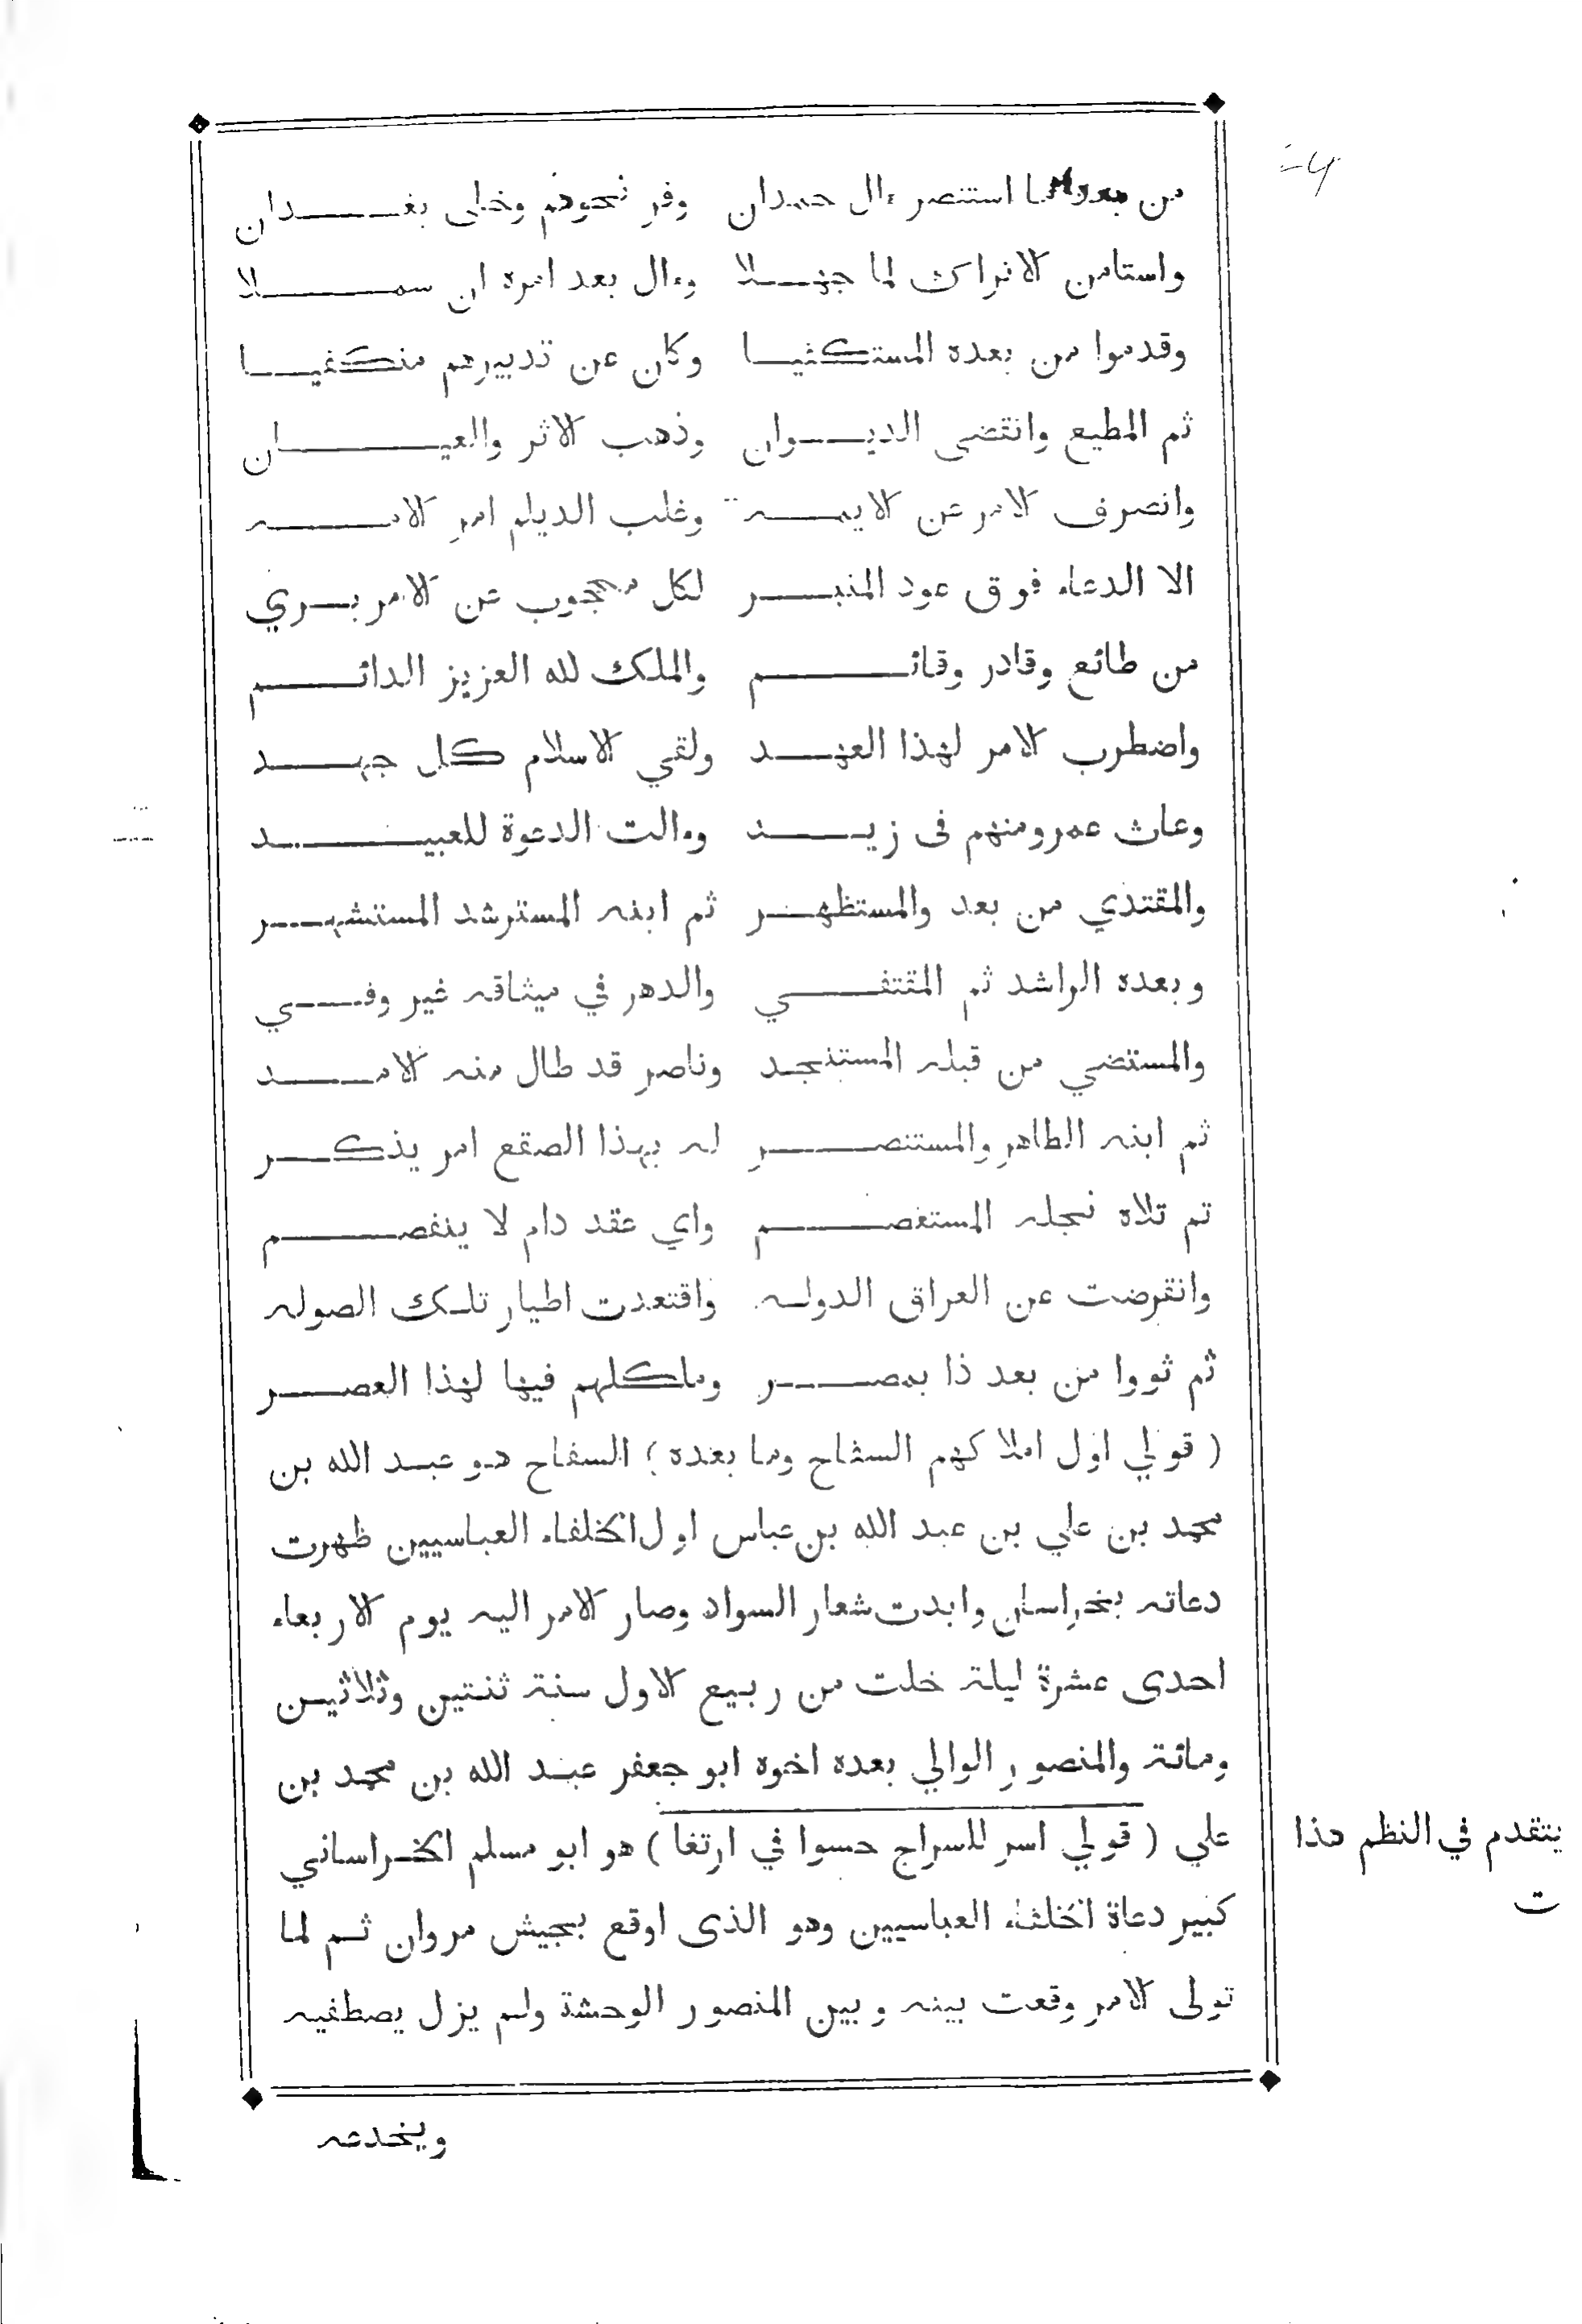 من بعد ما استنصر ءال حمدان وفر نحوهم وخلى بغـدان
واستامن الاتراك لما جهـلا وءال بعد امره ان سمـلا
وقدموا من بعده المستكفيـا وكان عن تدبيرهم منكفيـا
ثم المطيع وانقضى الديـوان وذهب الاثر والعيـان
وانصرف الامر عن الايمـه وغلب الديلم امر الامـه
الا الدعاء فوق عود المنبـر لكل محجوب عن الامر بـري
من طائع وقادر وقائـم والملك لله العزيز الدائـم
واضطرب الامر لهذا العهـد ولقي الاسلام كل جهـد
وعاث عمرو منهم فى زيـد ومالت الدعوة للعبيـد
والمقتدي من بعد والمستظهـر ثم ابنه المسترشد المستشهـر
وبعده الراشد ثم المقتفـي والدهر في ميثاقه غير وفـي
والمستضي من قبله المستنجـد وناصر قد طال منه الامـد
ثم ابنه الطاهر والمستنصـر له بهذا الصقع امر يذكـر
تم تلاه نجله المستعصـم واي عقد دام لا ينفصـم
وانقرضت عن العراق الدولـه واقتعدت اطيار تلـك الصوله
ثم ثووا من بعد ذا بمصـر وملكلهم فيها لهذا العصـر
( قولي اول املاكهم السفاح وما بعده ) السفاح هـو عبـد الله بن
محمد بن علي بن عبد الله بن عباس اول الخلفاء العباسيين ظهرت
دعاته بخراسان وابدت شعار السواد وصار الامر اليه يوم الاربعاء
احدى عشرة ليلة خلت من ربـيع الاول سنة ثنـتين وثلاثيـن
ومائة والمنصور الوالي بعده اخوه ابو جعفر عبـد الله بن محمد بن
علي ( قولي اسر للسراج حسوا في ارتغا ) هو ابو مسلم الخـراساني
يتقدم في النظم هذا
ت
كبير دعاة الخلفاء العباسيين وهو الذى اوقع بجيش مروان ثـم لما
تولى الامر وقعت بينه وبين المنصور الوحشة ولم يزل يصطفيه
ويخدعه